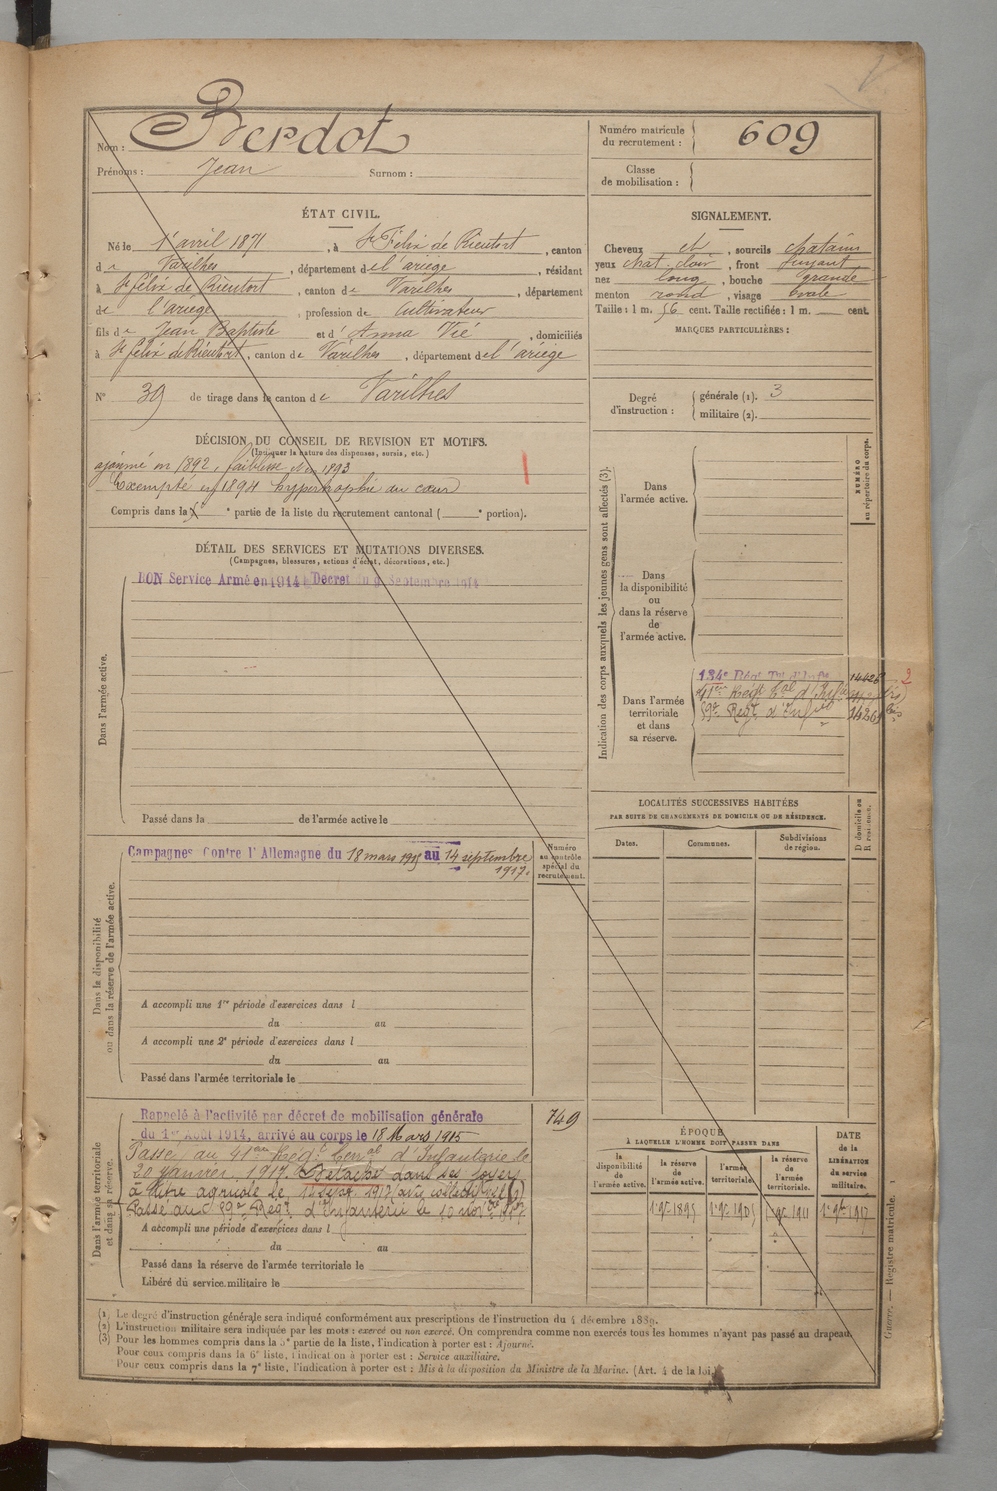 Nom : Berdot
Prénoms : Jean Surnom :
Numéro matricule du recrutement : 609
Classe de mobilisation :
ÉTAT CIVIL.
Né le 1er avril 1871, à St Félix de Rieutort, canton
de Varilhes, département de l'ariège, résidant
à St félix de Rieutort, canton de Varilhes, département
de l'ariège, profession de Cultivateur
fils de Jean Baptiste et d' Anna Vié, domiciliés
à St félix de Rieutort, canton de Varilhes, département de l'ariège
N° 39 de tirage dans le canton de Varilhes
SIGNALEMENT.
Cheveux et, sourcils chatains
yeux chat. clair, front fuyant
nez long, bouche grande
menton rond, visage ovale
Taille : 1 m. 56 cent. Taille rectifiée : 1 m. cent.
MARQUES PARTICULIÈRES :
Degré d'instruction : générale (1). 3
militaire (2).
DÉCISION DU CONSEIL DE REVISION ET MOTIFS.
(Indiquer la nature des dispenses, sursis, etc.)
ajourné en 1892, faiblesse 1893
Exempté en 1894 hypertrophie du cœur
Compris dans la e partie de la liste du recrutement cantonal ( e portion).
DÉTAIL DES SERVICES ET MUTATIONS DIVERSES.
(Campagnes, blessures, actions d'éclat, décorations, etc.)
Dans l'armée active.
BON Service Armé en 1914 Décret du 9 Septembre 1914
Passé dans la de l'armée active le
Indication des corps auxquels les jeunes gens sont affectés (3).
NUMÉRO au répertoire du corps.
Dans l'armée active.
Dans la disponibilité ou dans la réserve de l'armée active.
Dans l'armée territoriale et dans sa réserve.
134e Régt
59e Regt d'Infie
LOCALITÉS SUCCESSIVES HABITÉES
PAR SUITE DE CHANGEMENTS DE DOMICILE OU DE RÉSIDENCE.
Dates. Communes. Subdivisions de région. D domicile ou R résidence.
Dans la disponibilité ou dans la réserve de l'armée active.
Campagnes Contre l'Allemagne du 18 mars 1915 au 14 septembre
1917.
Numéro au contrôle spécial du recrutement.
A accompli une 1re période d'exercices dans l
du au
A accompli une 2e période d'exercices dans l
du au
Passé dans l'armée territoriale le
Dans l'armée territoriale et dans sa réserve.
Rappelé à l'activité par décret de mobilisation générale
749
du 1er Août 1914, arrivé au corps le 18 Mars 1915
Passé au 41em Regt Terral d'Infanterie le
20 janvier 1917. Détaché dans ses foyers
à titre agricole le 14 Sept. 1917
Passé au 59e Regt d'Infanterie le 10 novbre 1917
A accompli une période d'exercices dans l
du au
Passé dans la réserve de l'armée territoriale le
Libéré du service militaire le
ÉPOQUE
À LAQUELLE L'HOMME DOIT PASSER DANS
DATE de la LIBÉRATION du service militaire.
la disponibilité de l'armée active.
la réserve de l'armée active.
l'armée territoriale.
la réserve de l'armée territoriale.
1er 9bre 1895 1er 9bre 1905 1er 9bre 1911 1er 9bre 1917
(1) Le degré d'instruction générale sera indiqué conformément aux prescriptions de l'instruction du 4 décembre 1889.
(2) L'instruction militaire sera indiquée par les mots : exercé ou non exercé. On comprendra comme non exercés tous les hommes n'ayant pas passé au drapeau.
(3) Pour les hommes compris dans la 5e partie de la liste, l'indication à porter est : Ajourné.
Pour ceux compris dans la 6e liste, l'indication à porter est : Service auxiliaire.
Pour ceux compris dans la 7e liste, l'indication à porter est : Mis à la disposition du Ministre de la Marine. (Art. 4 de la loi.)
Guerre. — Registre matricule. 1